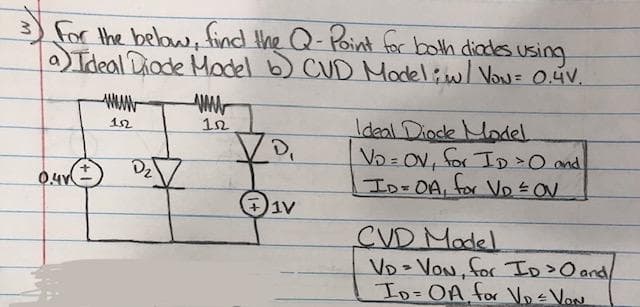 3) For the below, find the Q-Point for both diodes using
a) Ideal Diode Model b) CVD Model; w/ VON = 0.4V.
1Ω 1Ω
Ideal Diode Model
D1
VD = 0V, for ID > 0 and
0.4V + - D2
ID = 0A, for VD ≤ 0V
- + 1V
CVD Model
VD = VON, for ID > 0 and
ID = 0A for VD ≤ VON